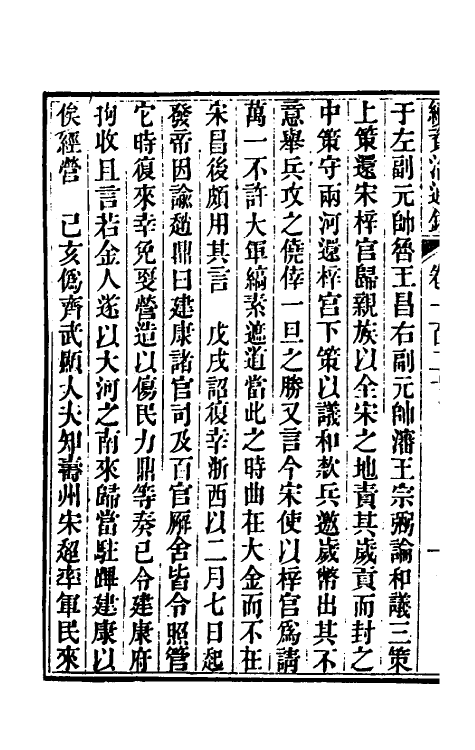 續資治通鑑 卷一百二十
于左副元帥魯王昌右副元帥瀋王宗弼論和議三策
上策還宋梓宮歸親族以全宋之地責其歲貢而封之
中策守兩河還梓宮下策以議和款兵邀歲幣出其不
意舉兵攻之僥倖一旦之勝又言今宋使以梓宮爲請
萬一不許大軍縞素遮道當此之時曲在大金而不在
宋昌後頗用其言 戊戌詔復幸浙西以二月七日起
發帝因諭趙鼎曰建康諸官司及百官廨舍皆令照管
它時復來幸免更營造以傷民力鼎等奏已令建康府
拘收且言若金人遂以大河之南來歸當駐蹕建康以
俟經營 己亥僞齊武顯大夫知壽州宋超率軍民來